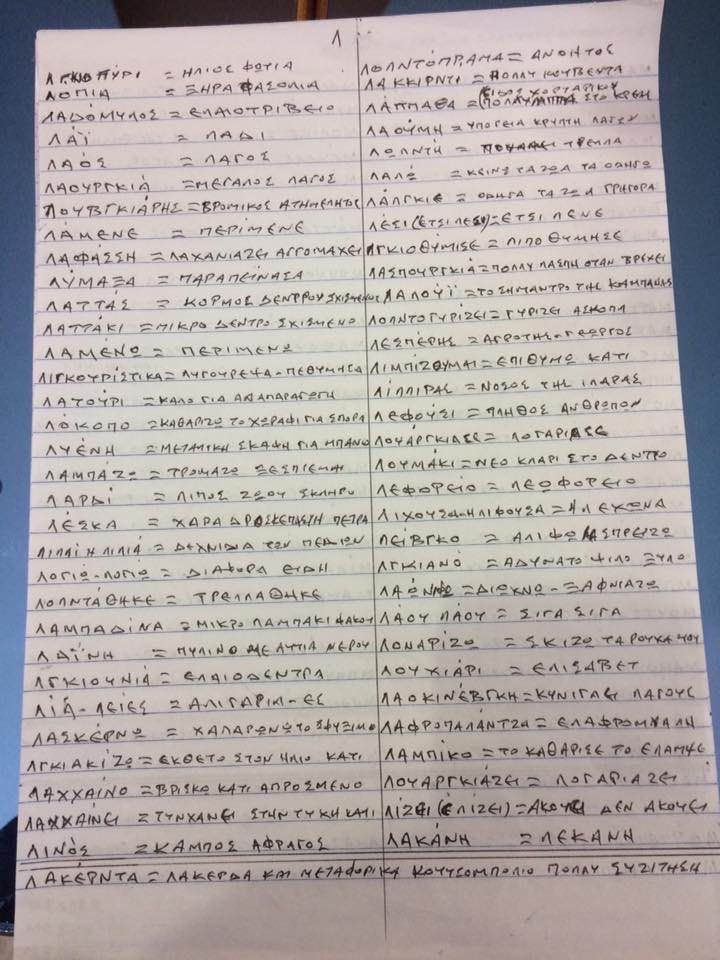 Λ
ΛΓΚΙΟΠΥΡΙ = ΗΛΙΟΣ ΦΩΤΙΑ
ΛΟΠΙΑ = ΞΗΡΑ ΦΑΣΟΛΙΑ
ΛΑΔΟΜΥΛΟΣ = ΕΛΑΙΟΤΡΙΒΕΙΟ
ΛΑΪ = ΛΑΔΙ
ΛΑΟΣ = ΛΑΓΟΣ
ΛΑΟΥΡΓΚΙΑ = ΜΕΓΑΛΟΣ ΛΑΓΟΣ
ΛΟΥΒΓΚΙΑΡΗΣ = ΒΡΟΜΙΚΟΣ ΑΤΗΜΕΛΗΤΟΣ
ΛΑΜΕΝΕ = ΠΕΡΙΜΕΝΕ
ΛΑΦΑΣΣΗ = ΛΑΧΑΝΙΑΖΕΙ ΑΓΓΟΜΑΧΕΙ
ΛΥΜΑΞΑ = ΠΑΡΑΠΕΙΝΑΣΑ
ΛΑΤΤΑΣ = ΚΟΡΜΟΣ ΔΕΝΤΡΟΥ ΣΧΙΣΜΕΝΟΣ
ΛΑΤΤΑΚΙ = ΜΙΚΡΟ ΔΕΝΤΡΟ ΣΧΙΣΜΕΝΟ
ΛΑΜΕΝΩ = ΠΕΡΙΜΕΝΩ
ΛΙΓΚΟΥΡΙΣΤΙΚΑ = ΛΥΓΟΥΡΕΨΑ - ΠΕΘΥΜΗΣΑ
ΛΑΤΟΥΡΙ = ΚΑΛΟ ΓΙΑ ΑΝΑΠΑΡΑΓΩΓΗ
ΛΟΚΟΠΟ = ΚΑΘΑΡΙΖΩ ΤΟ ΧΩΡΑΦΙ ΓΙΑ ΣΠΟΡΑ
ΛΥΕΝΗ = ΜΕΤΑΛΙΚΗ ΣΚΑΦΗ ΓΙΑ ΜΠΑΝΙΟ
ΛΑΜΠΑΖΩ = ΤΡΟΜΑΖΩ ΞΕΣΠΙΕΜΑΙ
ΛΑΡΔΙ = ΛΙΠΟΣ ΖΩΟΥ ΣΚΛΗΡΟ
ΛΕΣΚΑ = ΧΑΡΑΔΡΟΣΚΕΠΑΣΤΗ ΠΕΤΡΑ
ΛΙΛΛΙ Η ΛΙΛΙΑ = ΔΕΧΝΙΔΑ ΤΩΝ ΠΕΔΙΩΝ
ΛΟΓΙΩ-ΛΟΓΙΩ = ΔΙΑΦΟΡΑ ΕΙΔΗ
ΛΟΛΝΤΑΘΗΚΕ = ΤΡΕΛΛΑΘΗΚΕ
ΛΑΜΠΑΔΙΝΑ = ΜΙΚΡΟ ΛΑΜΠΑΚΙ ΦΑΚΟΥ
ΛΑΪΝΗ = ΠΥΛΙΝΟ ΜΕ ΑΥΤΙΑ ΝΕΡΟΥ
ΛΓΚΙΟΥΝΙΑ = ΕΛΑΙΟΔΕΝΤΡΑ
ΛΙΑ-ΛΕΙΕΣ = ΑΛΙΓΑΡΙΑ-ΕΣ
ΛΑΣΚΕΡΝΩ = ΧΑΛΑΡΩΝΩ ΤΟ ΣΦΥΞΙΜΟ
ΛΓΚΙΑΚΙΖΩ = ΕΚΘΕΤΟ ΣΤΟΝ ΗΛΙΟ ΚΑΤΙ
ΛΑΧΧΑΙΝΟ = ΒΡΙΣΚΩ ΚΑΤΙ ΑΠΡΟΣΜΕΝΟ
ΛΑΧΧΑΙΝΕΙ = ΤΥΝΧΑΝΕΙ ΣΤΗΝ ΤΥΚΗ ΚΑΤΙ
ΛΙΝΟΣ = ΚΑΜΠΟΣ ΑΦΡΑΓΟΣ
ΛΟΛΝΤΟΠΡΑΜΑ = ΑΝΟΗΤΟΣ
ΛΑΚΚΙΡΝΤΙ = ΠΟΛΛΥ ΚΟΥΒΕΝΤΑ
(ΕΙΔΟΣ ΧΟΡΤΑΡΙΚΟΥ
ΛΑΠΠΑΘΑ = ΣΤΟ ΚΡΕΗ
ΛΑΟΥΜΗ = ΥΠΟΓΕΙΑ ΚΡΥΠΤΗ ΛΑΓΟΥ
ΛΩΛΝΤΗ = ΤΡΕΛΛΑ
ΛΑΛΩ = ΚΕΙΝΩ ΤΑ ΖΩΑ ΤΑ ΟΔΗΓΩ
ΛΑΛΓΚΙΕ = ΟΔΗΓΑ ΤΑ ΖΩΑ ΓΡΗΓΟΡΑ
ΛΕΣΙ (ΕΤΣΙ ΛΕΣΙ) = ΕΤΣΙ ΛΕΝΕ
ΛΓΚΙΟΘΥΜΙΣΕ = ΛΙΠΟΘΥΜΗΣΕ
ΛΑΣΠΟΥΡΓΚΙΑ = ΠΟΛΛΥ ΛΑΣΠΗ ΟΤΑΝ ΒΡΕΧΕΙ
ΛΑΛΟΥΪ = ΤΟ ΣΗΜΑΝΤΡΟ ΤΗΣ ΚΑΜΠΑΝΑΣ
ΛΟΛΝΤΟΓΥΡΙΖΕΙ = ΓΥΡΙΖΕΙ ΑΣΚΟΠΑ
ΛΕΣΠΕΡΗΣ = ΑΓΡΟΤΗΣ-ΓΕΩΡΓΟΣ
ΛΙΜΠΙΖΘΥΜΑΙ = ΕΠΙΘΥΜΩ ΚΑΤΙ
ΛΙΛΠΙΡΑΣ = ΝΟΣΟΣ ΤΗΣ ΙΛΑΡΑΣ
ΛΕΦΟΥΣΙ = ΠΛΗΘΟΣ ΑΝΘΡΩΠΩΝ
ΛΟΥΑΡΓΚΙΑΣΕ = ΛΟΓΑΡΙΑΣΕ
ΛΟΥΜΑΚΙ = ΝΕΟ ΚΛΑΡΙ ΣΤΟ ΔΕΝΤΡΟ
ΛΕΦΟΡΕΙΟ = ΛΕΩΦΟΡΕΙΟ
ΛΙΧΟΥΣΑ-ΗΛΙΦΟΥΣΑ = Η ΛΕΧΩΝΑ
ΛΕΙΒΓΚΟ = ΑΛΙΦΩ ΑΣΠΡΕΙΖΩ
ΛΓΚΙΑΝΟ = ΑΔΥΝΑΤΟ ΨΙΛΟ ΞΥΛΟ
ΛΑΩΝΝΩ = ΔΙΩΧΝΩ - ΞΑΦΝΙΑΖΩ
ΛΑΟΥ ΛΑΟΥ = ΣΙΓΑ ΣΙΓΑ
ΛΟΝΑΡΙΖΩ = ΣΚΙΖΩ ΤΑ ΡΟΥΧΑ ΜΟΥ
ΛΟΥΧΙΑΡΙ = ΕΛΙΣΑΒΕΤ
ΛΑΟΚΙΝΕΒΓΚΗ = ΚΥΝΙΓΑΕΙ ΛΑΓΟΥΣ
ΛΑΦΡΟΠΑΛΑΝΤΖΑ = ΕΛΑΦΡΟΜΥΑΛΗ
ΛΑΜΠΙΚΟ = ΤΟ ΚΑΘΑΡΙΣΕ ΤΟ ΕΛΑΜΨΕ
ΛΟΥΑΡΓΚΙΑΖΕΙ = ΛΟΓΑΡΙΑΖΕΙ
ΛΙΖΕΙ (ΕΛΙΖΕΙ) = ΑΚΟΥΕΙ ΔΕΝ ΑΚΟΥΕΙ
ΛΑΚΑΝΗ = ΛΕΚΑΝΗ
ΛΑΚΕΡΝΤΑ = ΛΑΚΕΡΔΑ ΚΑΙ ΜΕΤΑΦΟΡΙΚΑ ΚΟΥΤΣΟΜΠΟΛΙΟ ΠΟΛΛΥ ΣΥΖΙΤΗΣΗ